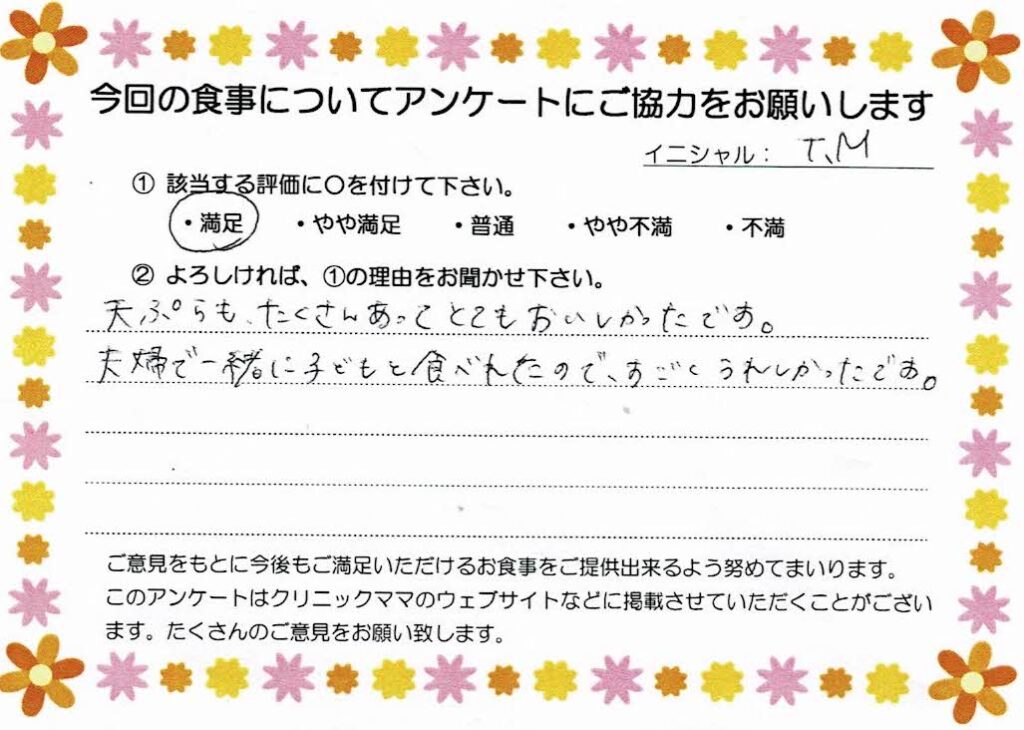 今回の食事についてアンケートにご協力をお願いします
イニシャル： T、M
① 該当する評価に○を付けて下さい。
・満足 ・やや満足 ・普通 ・やや不満 ・不満
② よろしければ、①の理由をお聞かせ下さい。
天ぷらも、たくさんあってとてもおいしかったです。
夫婦で一緒に子どもと食べれたので、すごくうれしかったです。
ご意見をもとに今後もご満足いただけるお食事をご提供出来るよう努めてまいります。
このアンケートはクリニックママのウェブサイトなどに掲載させていただくことがござい
ます。たくさんのご意見をお願い致します。